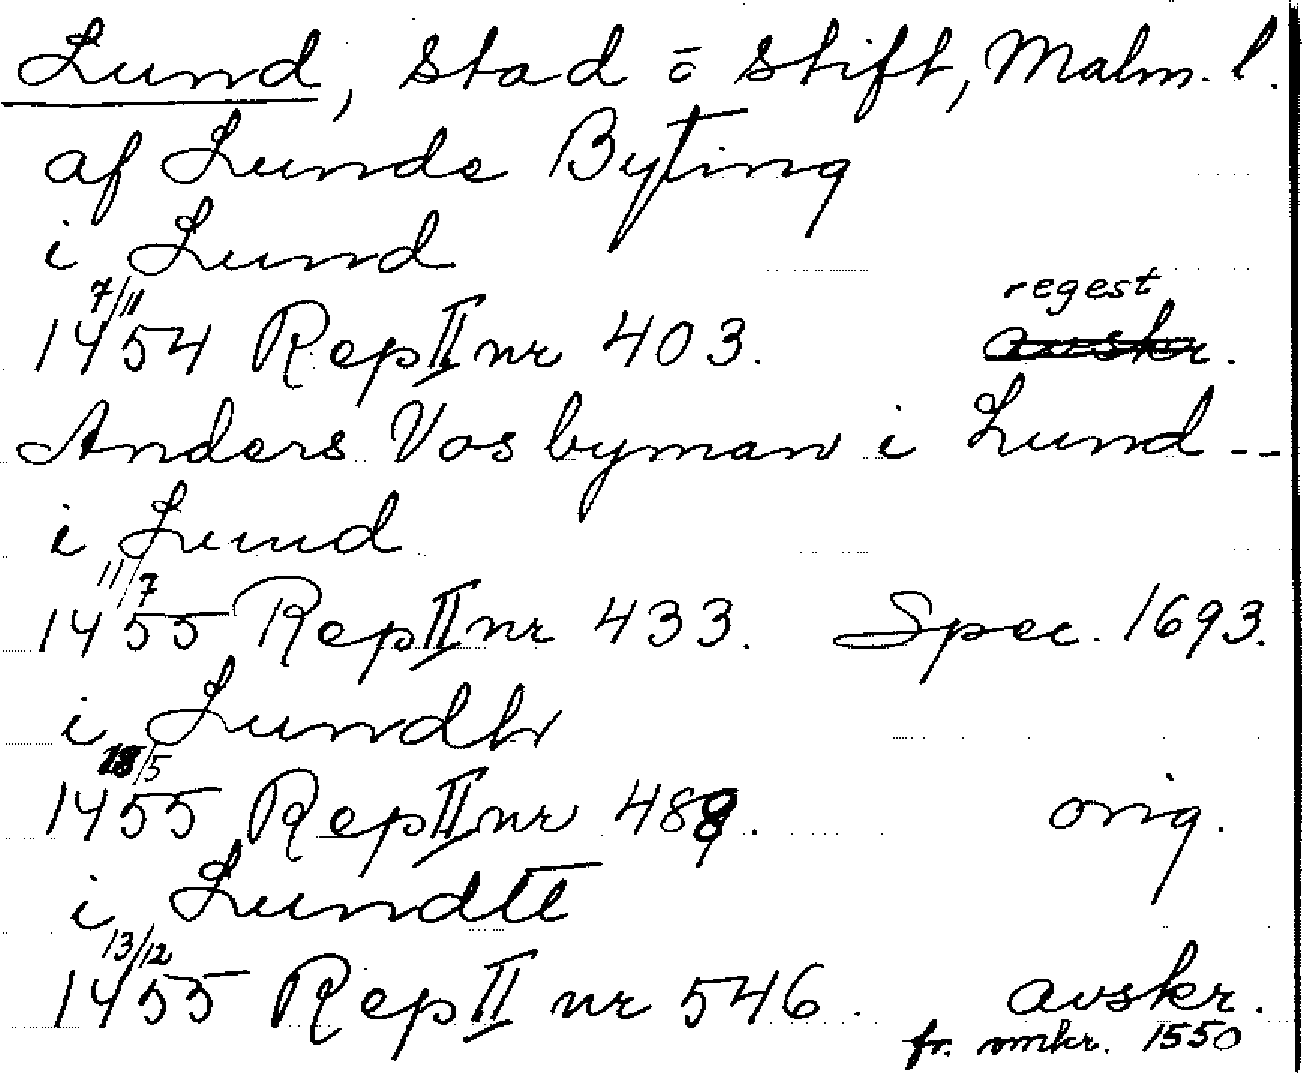 Lund, stad o stift, Malm. l.
af Lunde Byting
i Lund
7/11 regest
1454 Rep II nr 403. avskr.
Anders Vos byman i Lund --
i Lund
11/7
1455 Rep II nr 433. Spec. 1693.
i Lundh
18/5
1455 Rep II nr 489. orig.
i Lundh
13/12
1455 Rep II nr 546. avskr.
fr. omkr. 1550